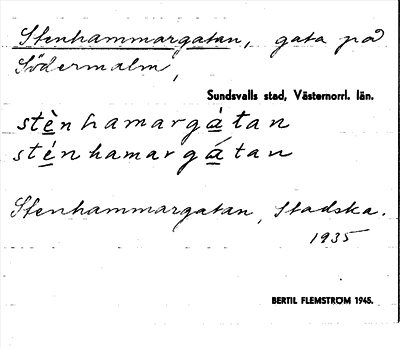 Stenhammargatan, gata på
Södermalm,
Sundsvalls stad, Västernorrl. län.
stènhamargàtan
sténhamargátan
Stenhammargatan, Stadska.
1935
BERTIL FLEMSTRÖM 1945.